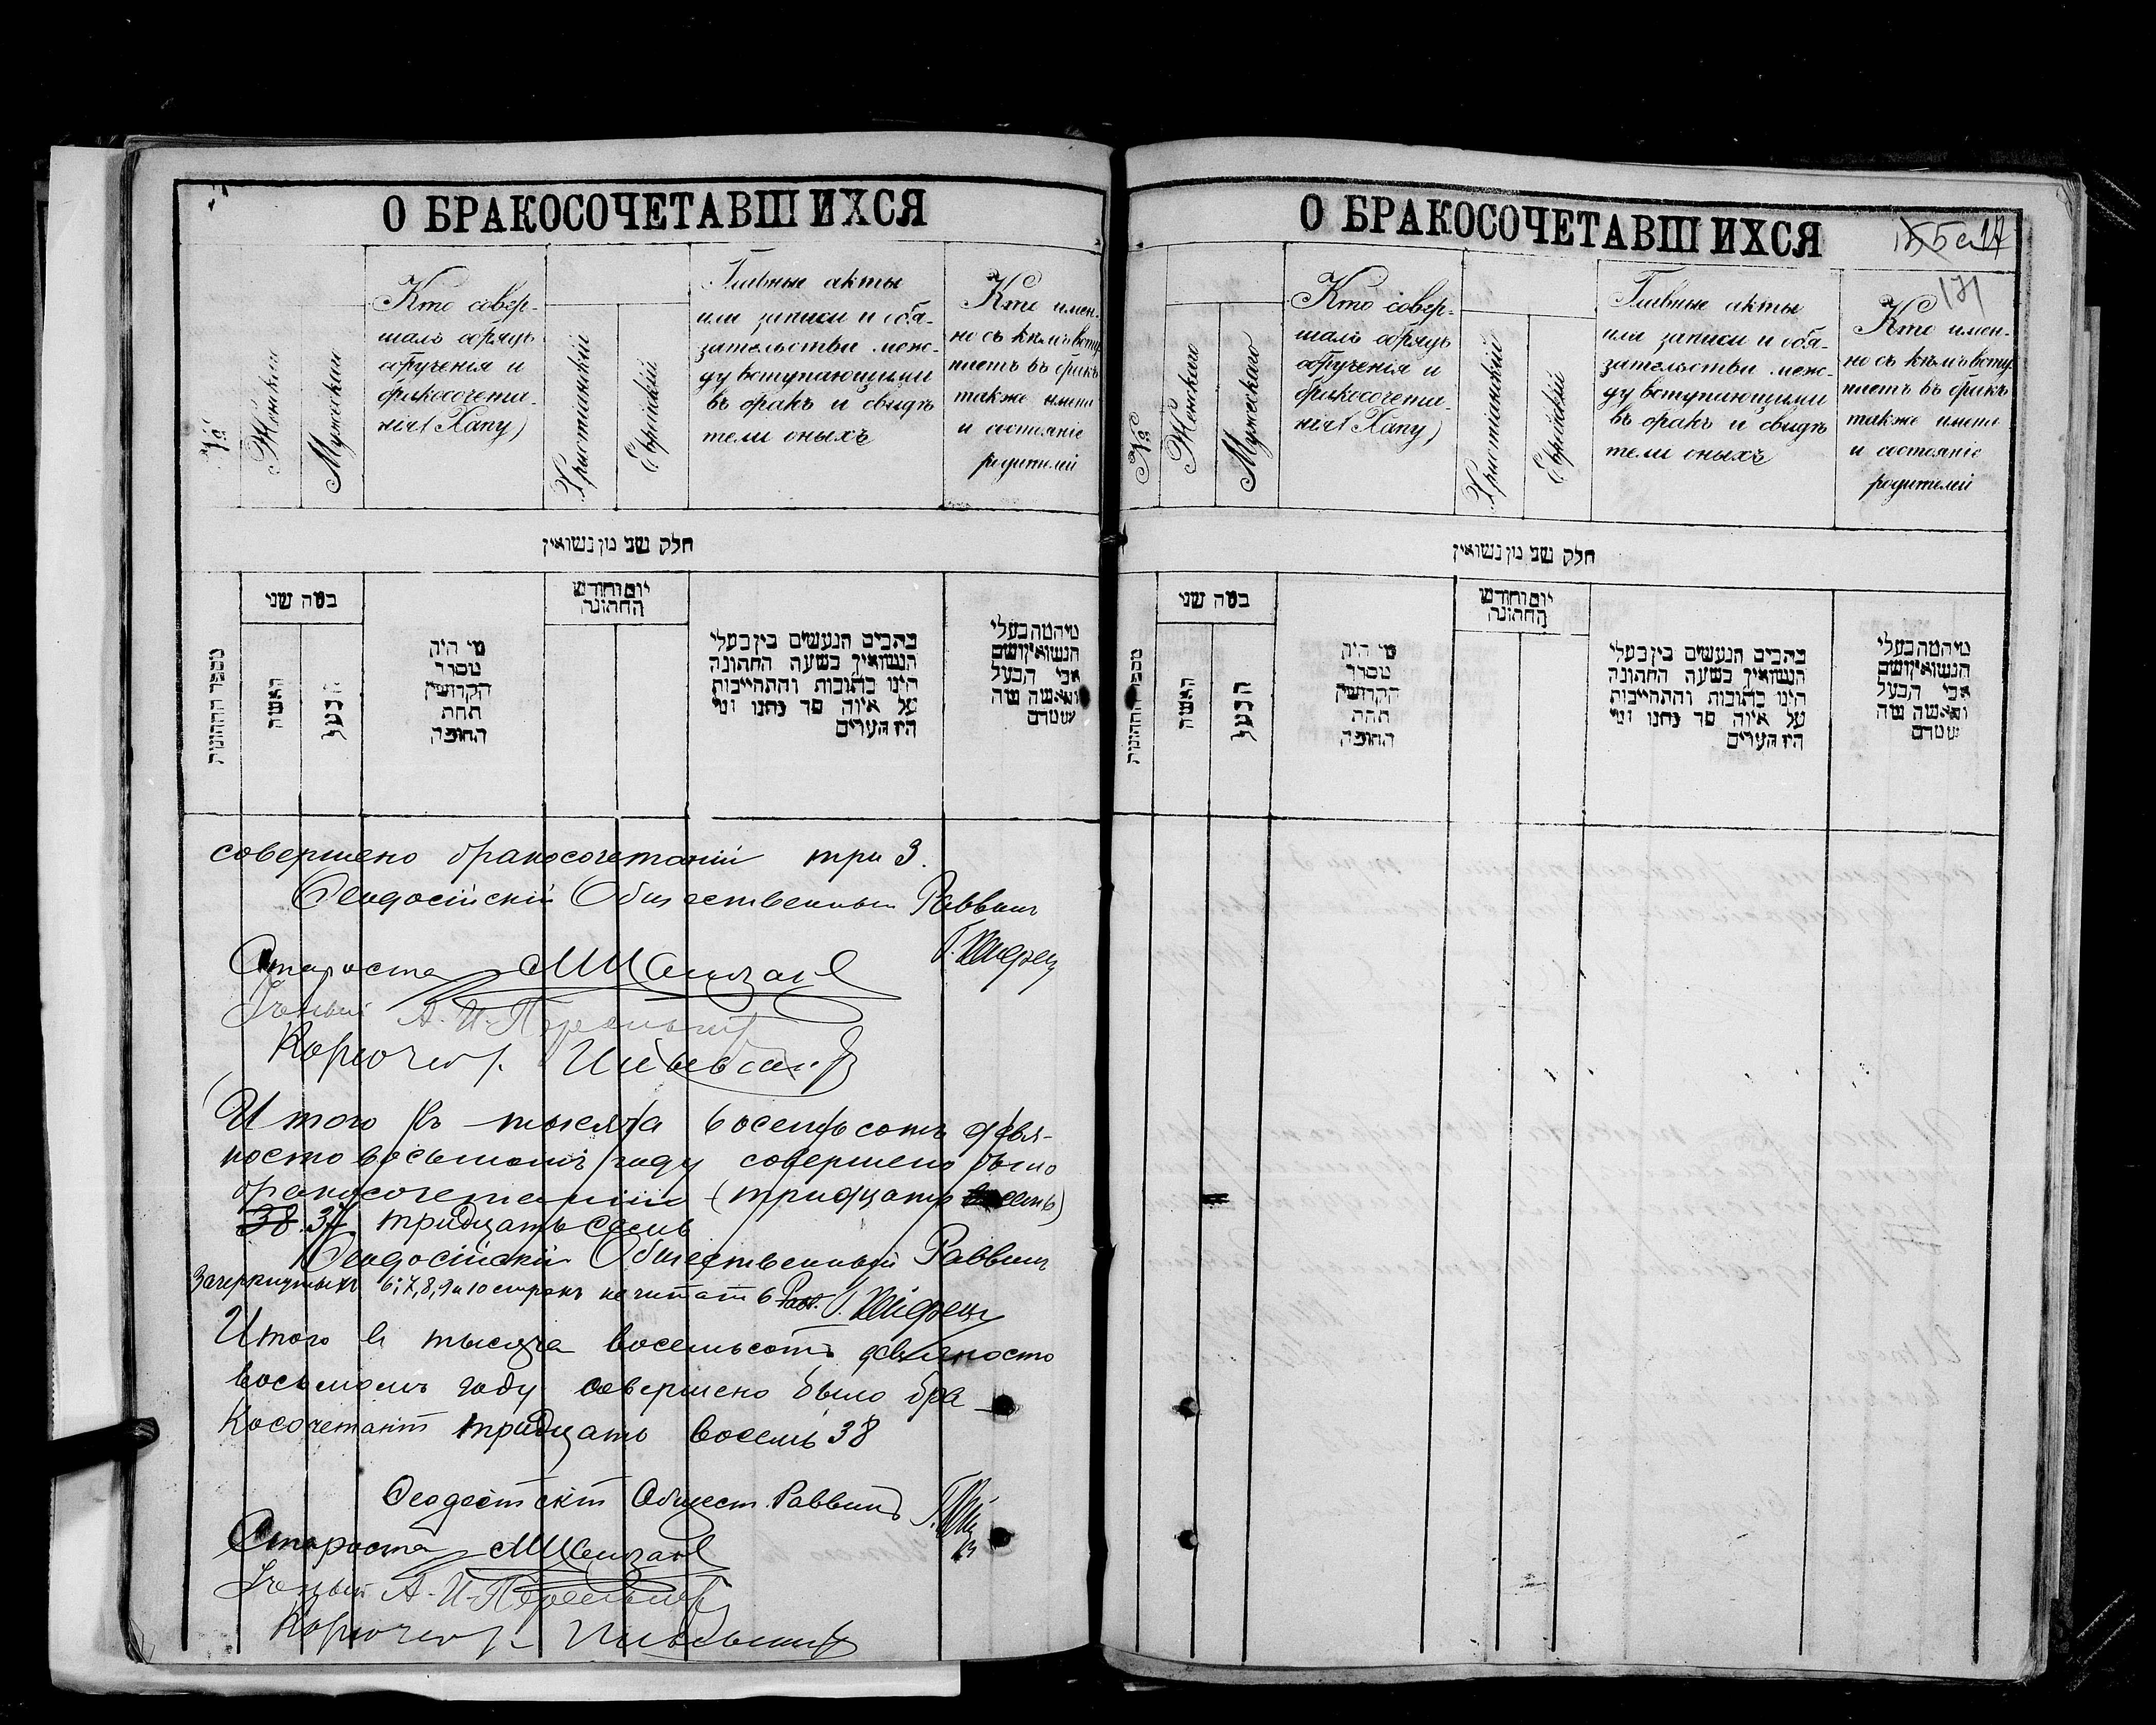 О БРАКОСОЧЕТАВШИХСЯ
№
Женскаго
Мужескаго
Кто совер-
шалъ обрядъ
обрученія и
бракосочета-
нія (Хапу)
Христіанскій
Еврейскій
Главные акты
или записи и обя-
зательства меж-
ду вступающими
въ бракъ и свидѣ
тели оныхъ
Кто имен-
но съ кѣмъ всту
паетъ въ бракъ
также имена
и состояніе
родителей
חלק שני מן נשואין
מספר החתונות
כמה שני
האשה
הבעל
מי היה
מסדר
הקדושין
תחת
החופה
יום וחודש
החתונה
כתבים הנעשים בין בעלי
הנשואין בשעה החתונה
היינו כתובות והתחייבות
על איזה סך נתנו ומי
היו העדים
מיהמה בעלי
הנשואין ושם
אבי הבעל
והאשה מה
שמדם
совершено бракосочетаній три 3.
Ѳеодосійскій Общественный Раввинъ
Староста
Ученый
Итого въ тысяча восемьсотъ девя-
носто восьмомъ году совершено было
бракосочетаній (тридцать восемь)
38. 37 тридцать семь
Ѳеодосійскій Общественный Раввинъ
Зачеркнутыхъ 6, 7, 8, 9 и 10 строкъ не читать Рав.
Итого в тысяча восемьсотъ девяносто
восьмомъ году совершено было бра
косочетаній тридцать восемь 38
Ѳеодосійскій Общест. Раввинъ
Староста
Ученый
О БРАКОСОЧЕТАВШИХСЯ
171
№
Женскаго
Мужескаго
Кто совер-
шалъ обрядъ
обрученія и
бракосочета-
нія (Хапу)
Христіанскій
Еврейскій
Главные акты
или записи и обя-
зательства меж-
ду вступающими
въ бракъ и свидѣ
тели оныхъ
Кто имен-
но съ кѣмъ всту
паетъ въ бракъ
также имена
и состояніе
родителей
חלק שני מן נשואין
מספר החתונות
כמה שני
האשה
הבעל
מי היה
מסדר
הקדושין
תחת
החופה
יום וחודש
החתונה
כתבים הנעשים בין בעלי
הנשואין בשעה החתונה
היינו כתובות והתחייבות
על איזה סך נתנו ומי
היו העדים
מיהמה בעלי
הנשואין ושם
אבי הבעל
והאשה מה
שמדם